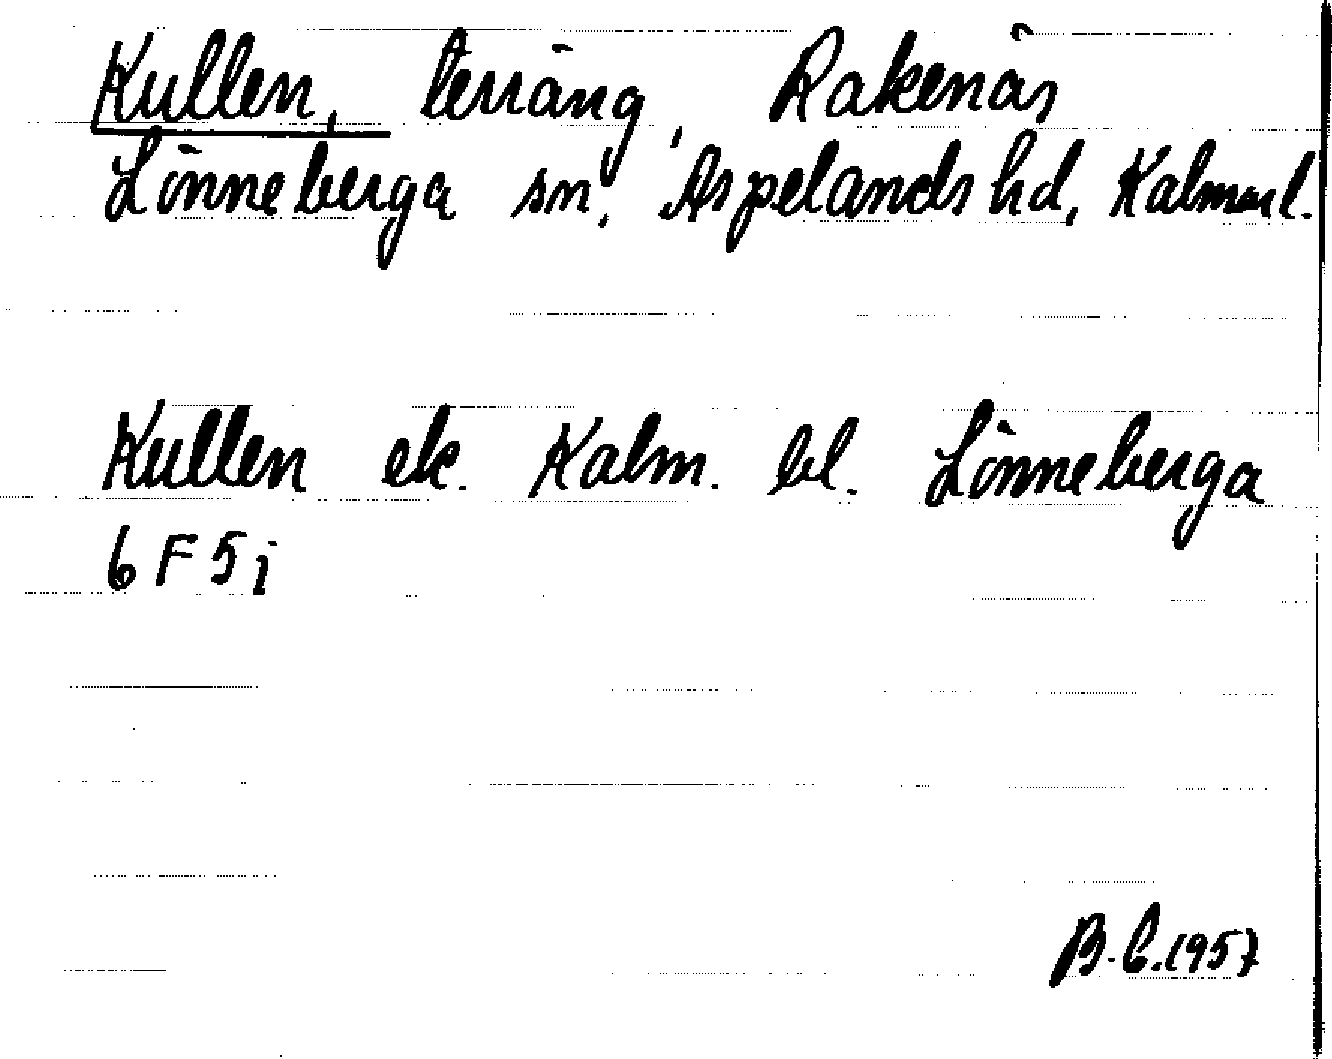 Kullen, terräng, Rakenäs
Lönneberga sn, Aspelands hd, Kalmar l.
Kullen ek. Kalm. bl. Lönneberga
6 F 5 i
B. C. 1957